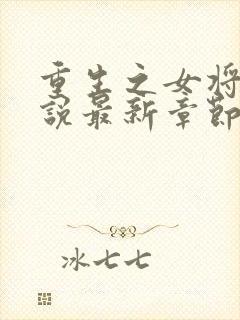 重生之女将
説最新章節
冰七七